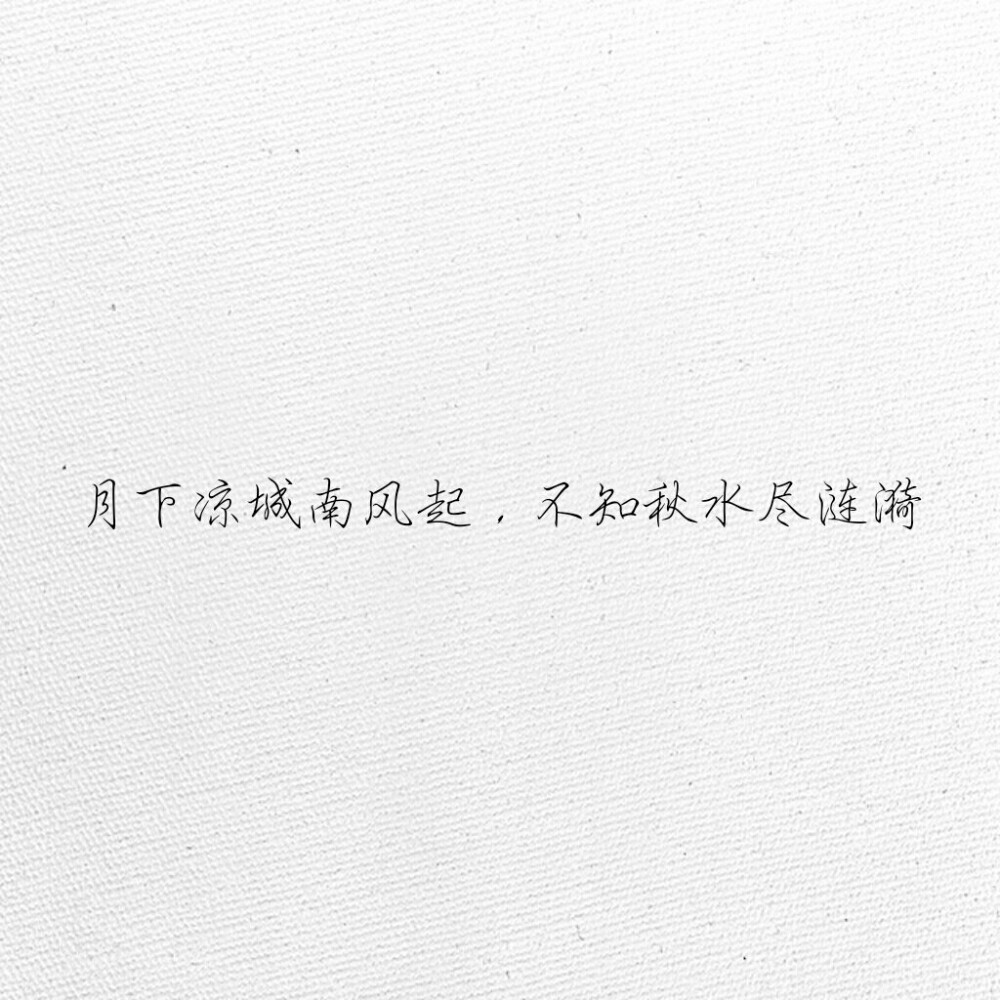 月下凉城南风起，不知秋水尽涟漪